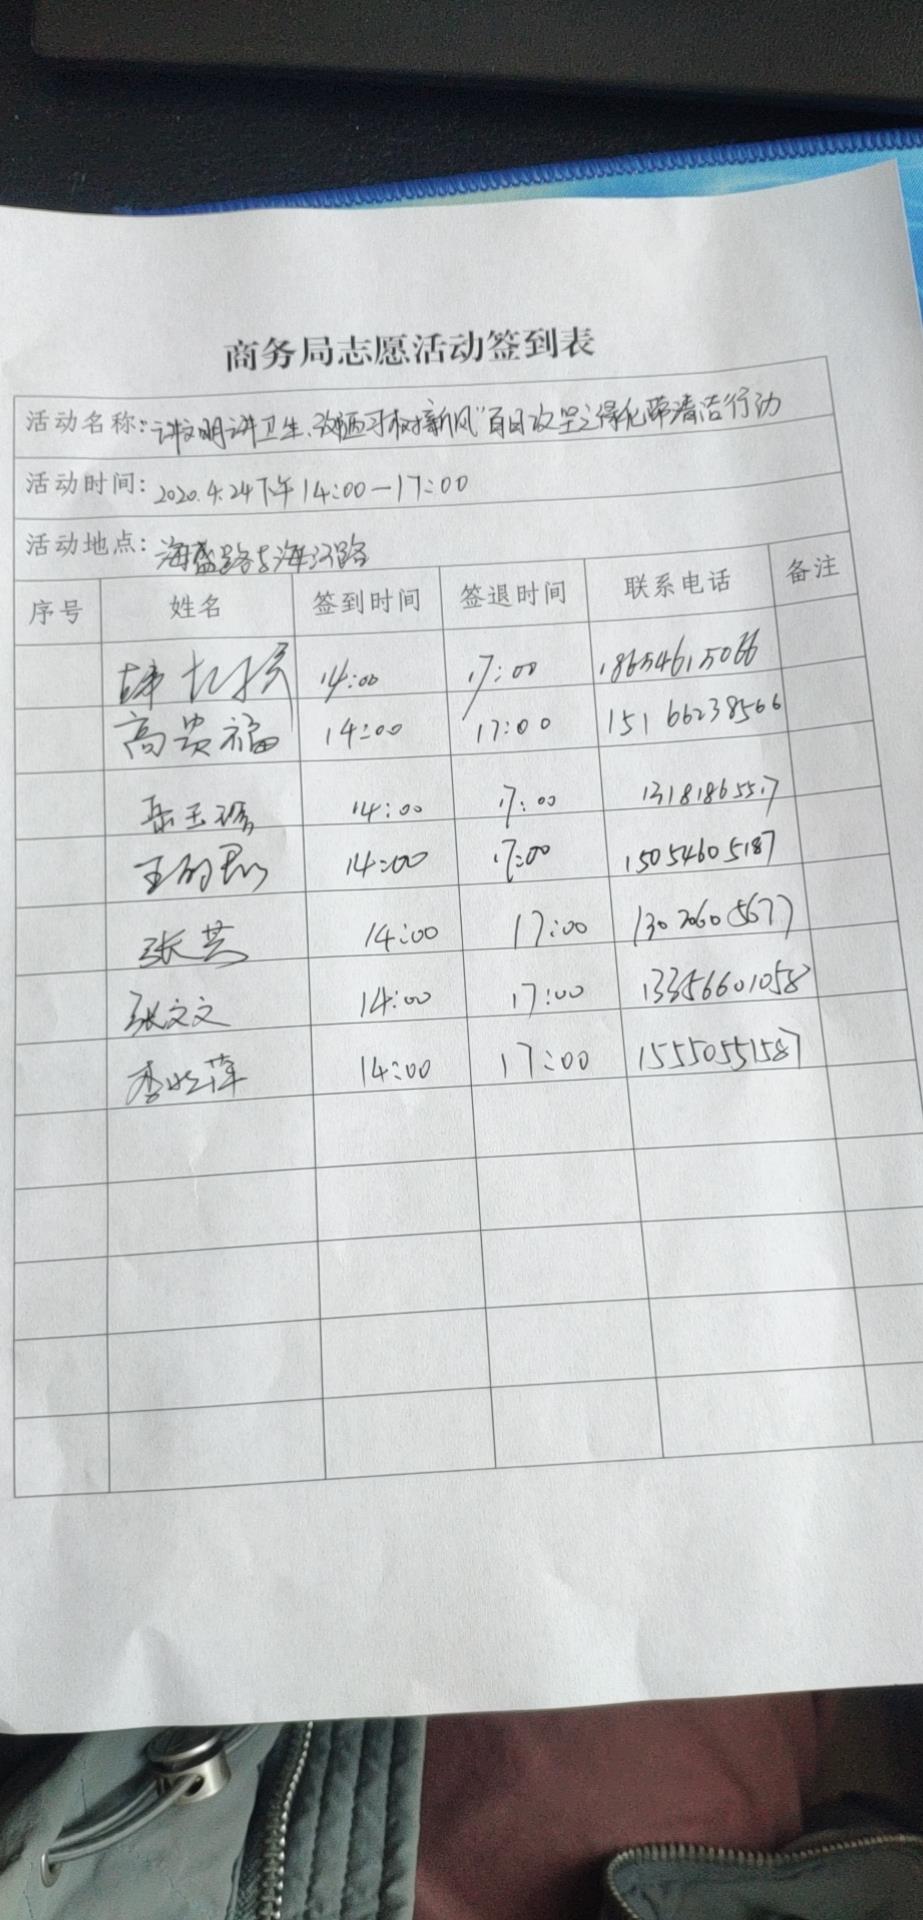 商务局志愿活动签到表
活动名称:"讲文明讲卫生、改陋习树新风"百日攻坚之绿化带清洁行动
活动时间: 2020.4.24下午14:00—17:00
活动地点: 海盛路与海江路
序号 姓名 签到时间 签退时间 联系电话 备注
14:00 17:00 18654615066
高贵福 14:00 17:00 15166238566
岳玉 14:00 17:00 13181865517
王 14:00 17:00 15054605187
张芸 14:00 17:00 13070605677
张文文 14:00 17:00 13356601058
李晓萍 14:00 17:00 15550551587